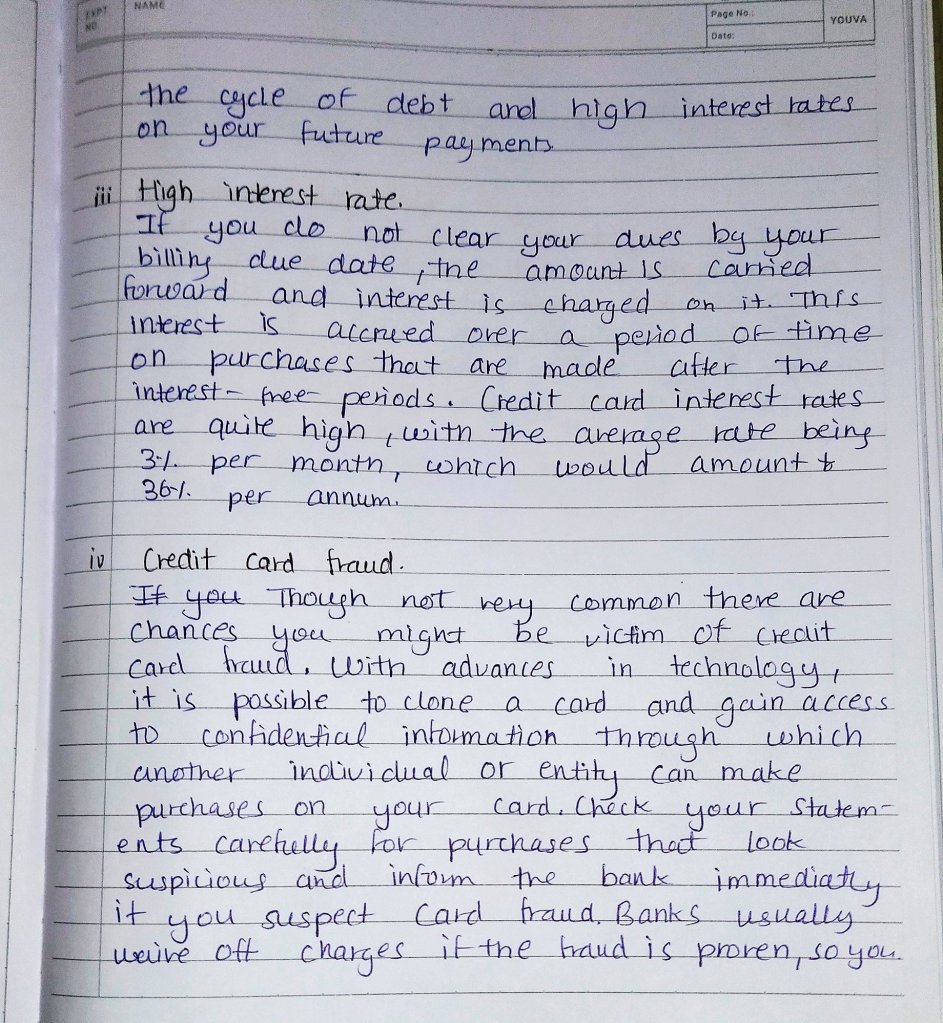 EXPT NO.
NAME
Page No.:
Date:
YOUVA
the cycle of debt and high interest rates
on your future payments
iii High interest rate.
If you do not clear your dues by your
billing due date, the amount is carried
forward and interest is charged on it. This
interest is accrued over a period of time
on purchases that are made after the
interest-free periods. Credit card interest rates
are quite high, with the average rate being
3% per month, which would amount to
36% per annum.
iv Credit card fraud.
If you Though not very common there are
chances you might be victim of credit
card fraud. With advances in technology,
it is possible to clone a card and gain access
to confidential information through which
another individual or entity can make
purchases on your card. Check your Statem-
ents carefully for purchases that look
suspicious and inform the bank immediatly
if you suspect card fraud. Banks usually
waive off charges if the fraud is proven, so you